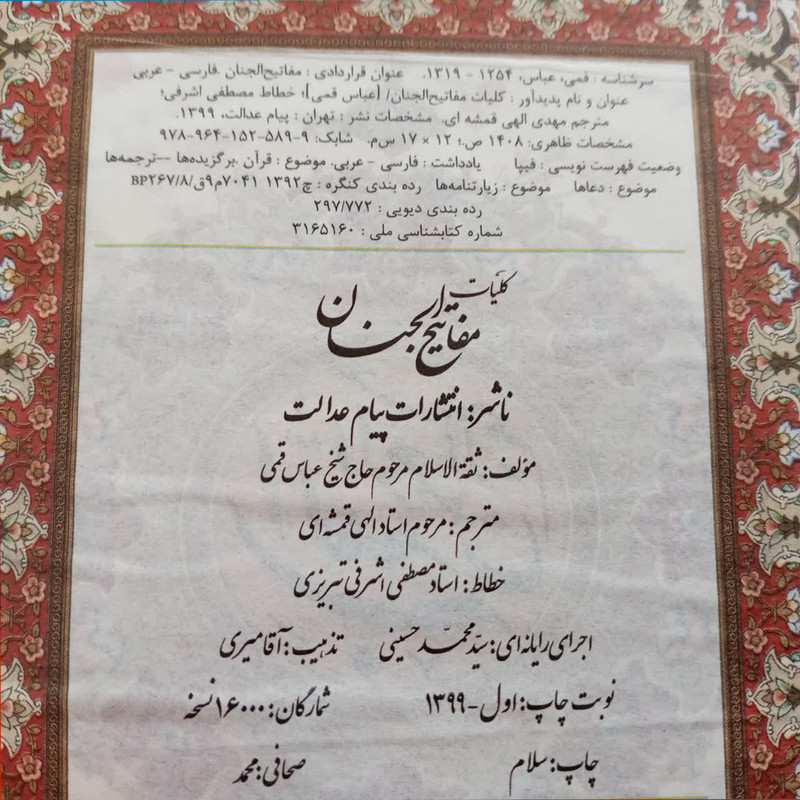 سرشناسه : قمی، عباس، ۱۲۵۴ - ۱۳۱۹. عنوان قراردادی : مفاتیح‌الجنان .فارسی - عربی
عنوان و نام پدیدآور : کلیات مفاتیح‌الجنان/ [عباس قمی]؛ خطاط مصطفی اشرفی؛
مترجم مهدی الهی قمشه ای. مشخصات نشر : تهران : پیام عدالت، ۱۳۹۹.
مشخصات ظاهری: ۱۴۰۸ ص.؛ ۱۲ × ۱۷ س‌م. شابک: ۹-۵۸۹-۱۵۲-۹۶۴-۹۷۸
وضعیت فهرست نویسی : فیپا یادداشت : فارسی - عربی. موضوع : قرآن .برگزیده‌ها --ترجمه‌ها
موضوع : دعاها موضوع : زیارتنامه‌ها رده بندی کنگره : ج۱۳۹۲ ۷۰۴۱م۹ق/BP۲۶۷/۸
رده بندی دیویی : ۲۹۷/۷۷۲
شماره کتابشناسی ملی : ۳۱۶۵۱۶۰
کلیات
مفاتیح الجنان
ناشر: انتشارات پیام عدالت
مؤلف: ثقة الاسلام مرحوم حاج شیخ عباس قمی
مترجم: مرحوم استاد الهی قمشه ای
خطاط: استاد مصطفی اشرفی تبریزی
اجرای رایانه ای: سیّد محمّد حسینی تذهیب: آقامیری
نوبت چاپ: اول - ۱۳۹۹ شمارگان: ۱۶۰۰۰ نسخه
چاپ: سلام صحافی: محمد